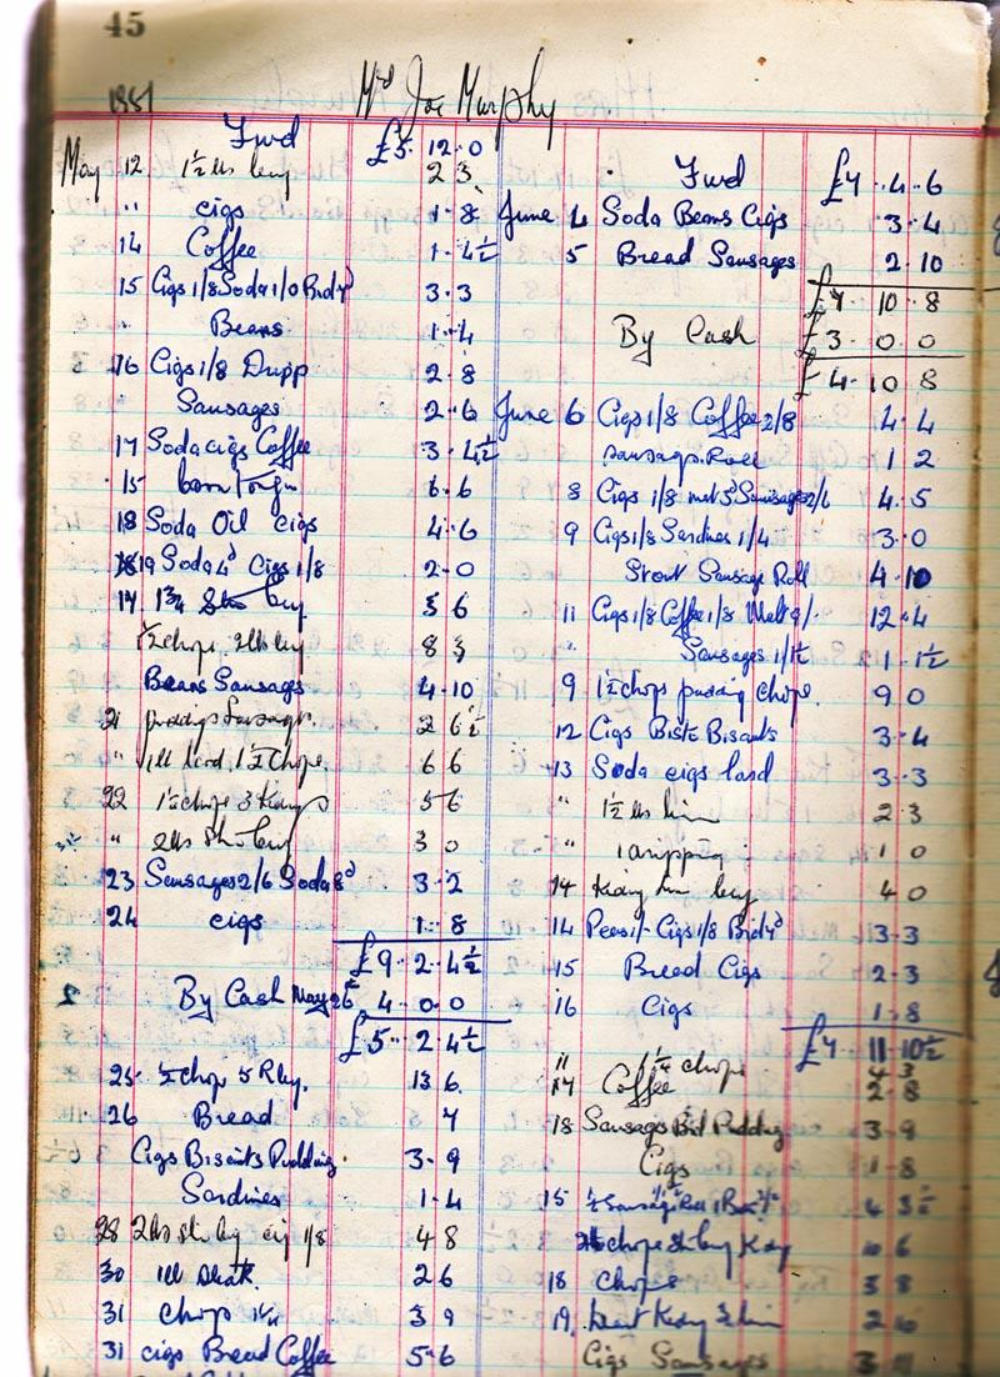 45
1951
Mrs Joe Murphy
Fwd £5.12.0
May 12 1½ lbs 2 3
" cigs 1.8
14 Coffee 1.4½
15 Cigs 1/8 Soda 1/0 Brd 4d 3.3
Beans 1.4
16 Cigs 1/8 Dripp 2.8
Sausages 2.6
17 Soda cigs Coffee 3.4½
15 6.6
18 Soda Oil cigs 4.6
19 Soda 4d Cigs 1/8 2-0
1¾ 5 6
½ chops 2lbs 8 3
Beans Sausages 4.10
21 puddings Sausages. 2 6½
" 1 lb Lard. 1½ Chops. 6 6
22 1½ chops 3 5 6
" 2lbs 3 0
23 Sausages 2/6 Soda 8d 3.2
24 cigs 1.8
£9.2.4½
By Cash May 26 4.0.0
£5.2.4½
25 chop 5 13 6
26 Bread 7
Cigs Biscuits Pudding. 3.9
Sardines 1.4
28 2lbs cig 1/8 4 8
30 1 lb Steak. 2 6
31 Chop 3 9
31 cigs Bread Coffee 5.6
Fwd £7.4.6
June 4 Soda Beans Cigs 3.4
5 Bread Sausages 2.10
£7.10.8
By Cash £3.0.0
£4.10 8
June 6 Cigs 1/8 Coffee 2/8 4.4
Sausage Roll 1 2
8 Cigs 1/8 Sausages 2/6 4.5
9 Cigs 1/8 Sardines 1/4 3.0
Stout Sausage Roll 4.10
11 Cigs 1/8 Coffee 1/8 Meat 9/- 12.4
" Sausages 1/1½ 1.1½
9 1½ chops pudding chops. 9 0
12 Cigs Bisto Biscuits 3.4
13 Soda cigs lard 3.3
" 1½ lbs 2 3
" 1 dripping 1 0
14 4 0
14 Peas 1/- Cigs 1/8 Brd 4d 3-3
15 Bread Cigs 2.3
16 Cigs 1.8
£7 11.10½
11 chops 4 3
17 Coffee 2.8
18 Sausages Brd Pudding 3.9
Cigs 1.8
15 Sausage 4 3½
chops 10 6
18 Chops 3 8
19. 2 10
Cigs Sausages